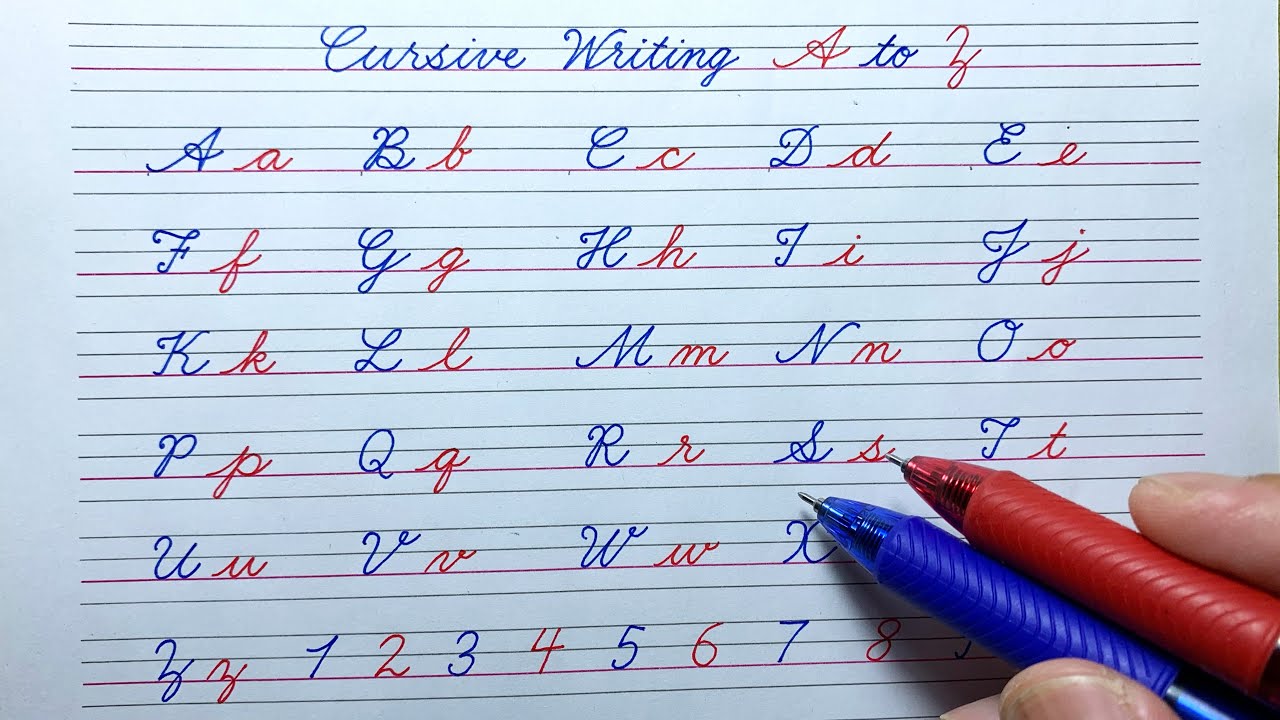 Cursive Writing A to Z
A a B b C c D d E e
F f G g H h I i J j
K k L l M m N n O o
P p Q q R r S s T t
U u V v W w X
Z z 1 2 3 4 5 6 7 8